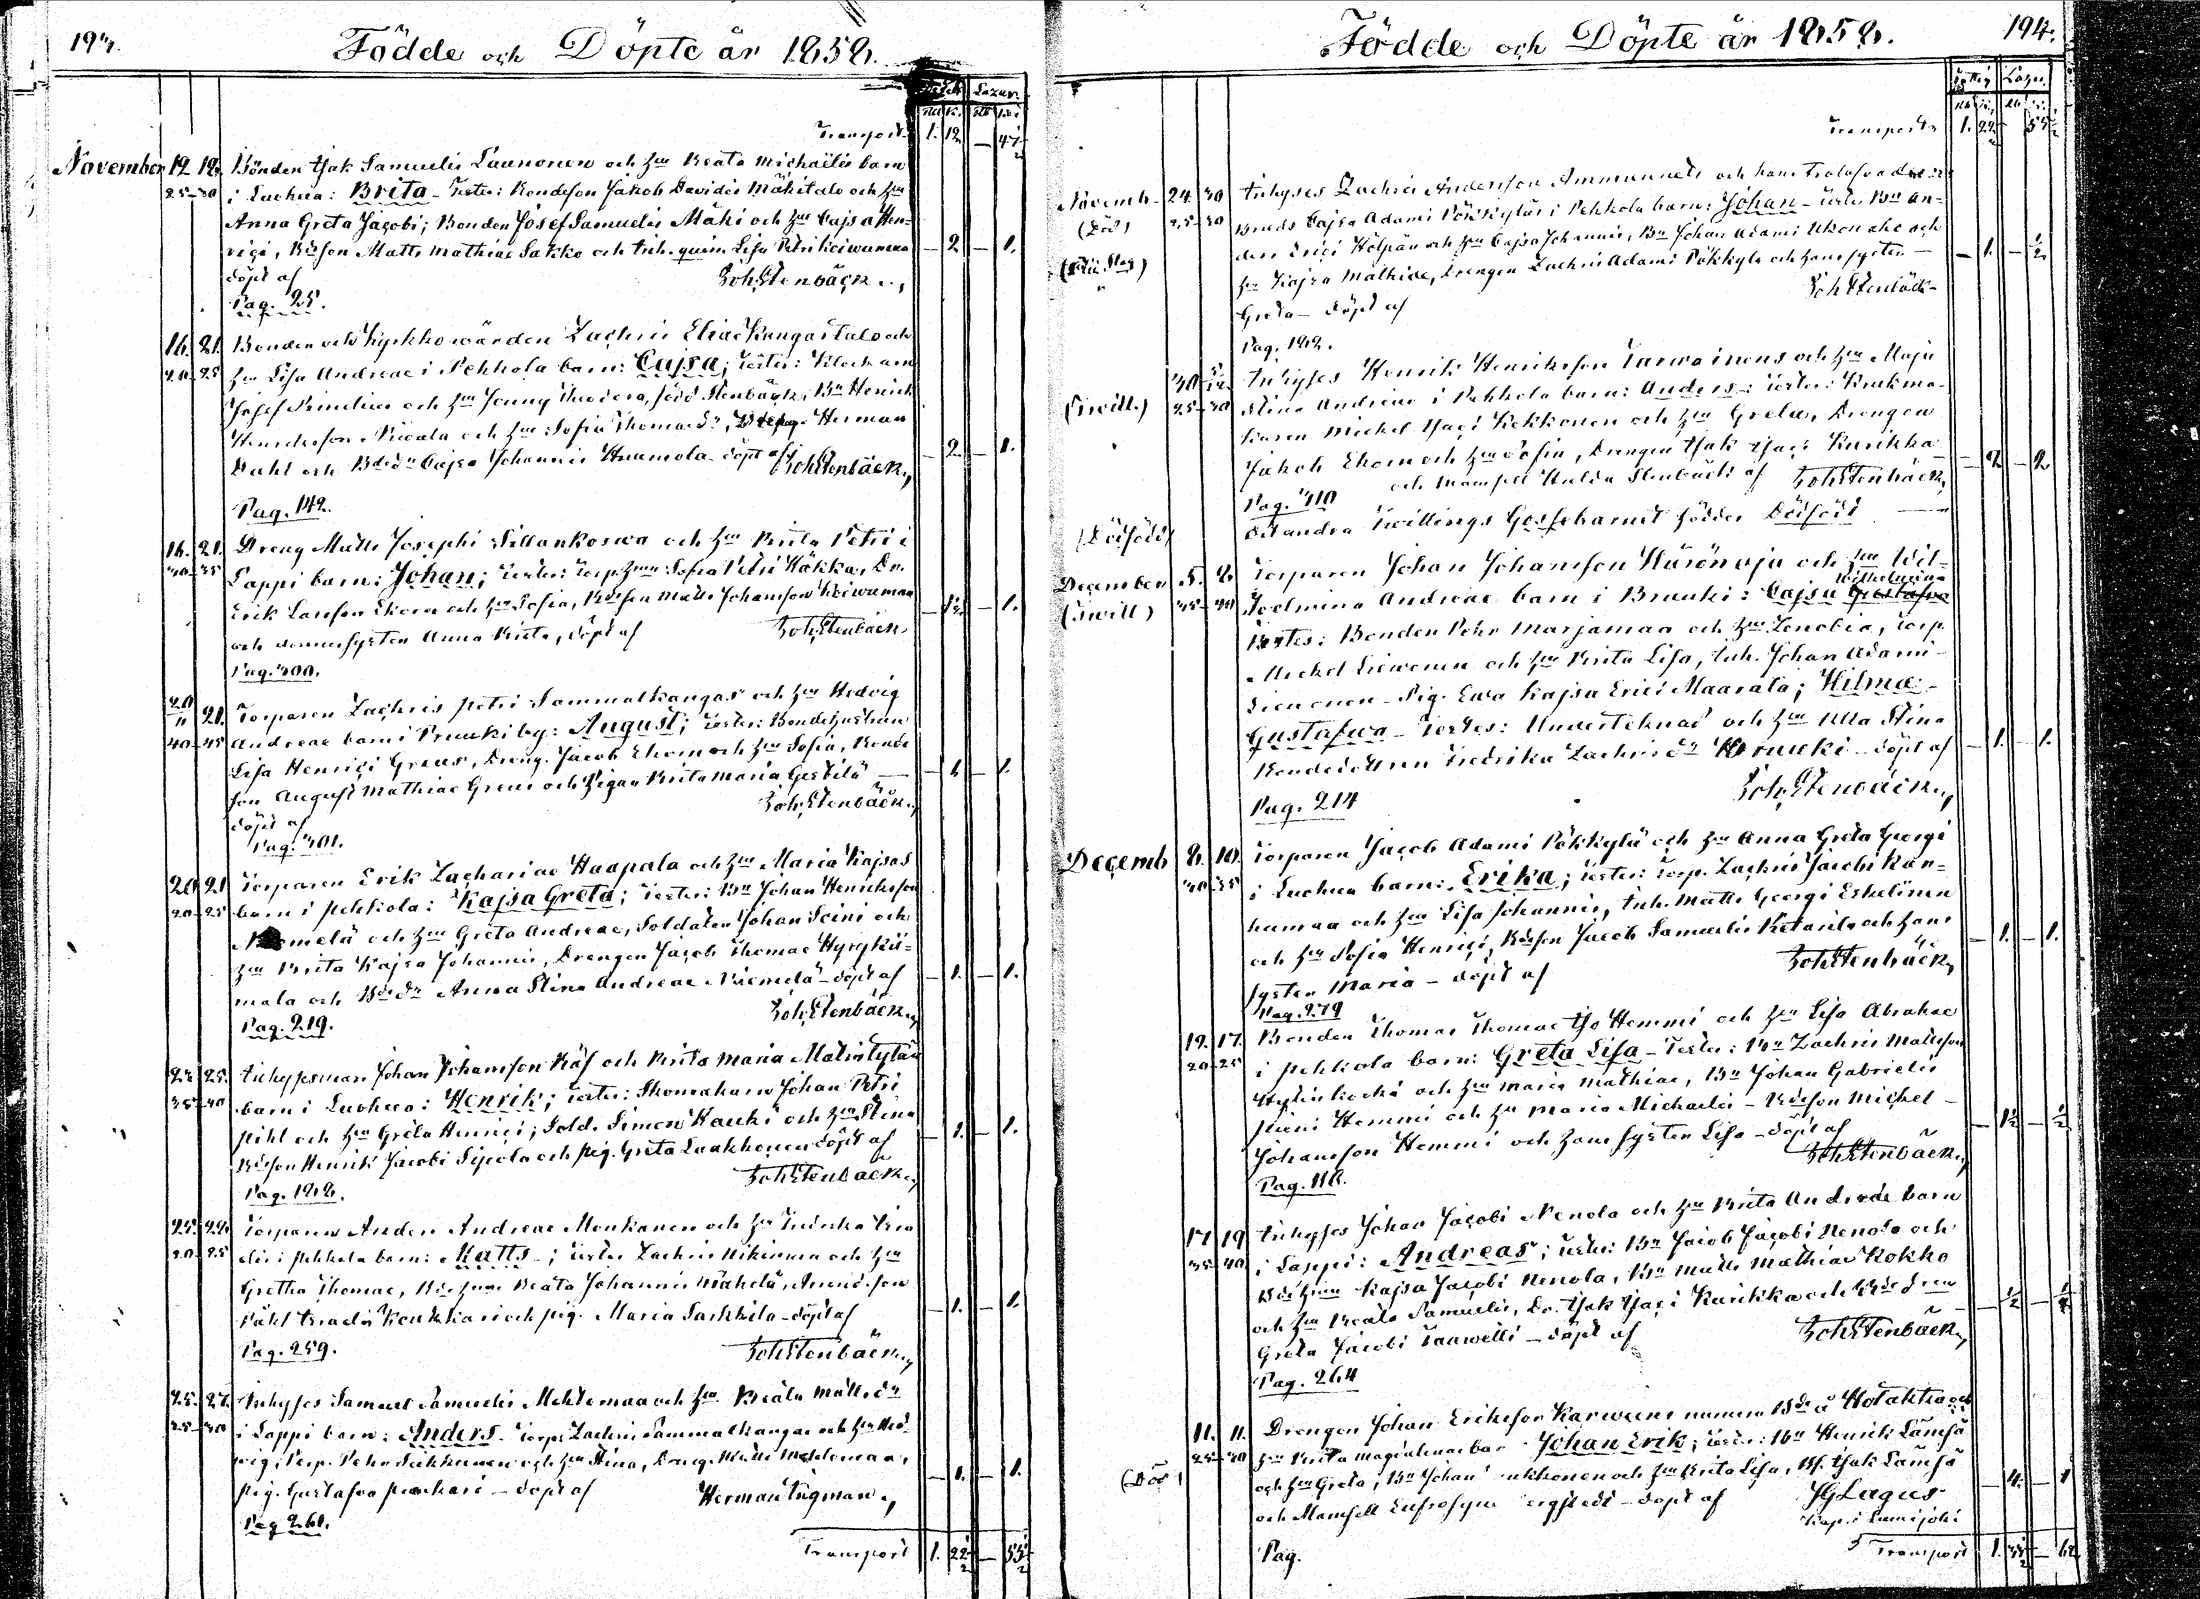 193.
Födde och Döpte år 1858.
Lazar.
Transport 1. 12 — 47½
November 12 18. Bonden Isak Samuelis Saunonen och hu Beata Michaëlis barn
25-30 i Luohua: Brita - Testes: Bondeson Jakob Davidis Mäkitalo och hu
Anna Greta Jacobi; Bonden Josef Samuelis Mäki och hu Cajsa Hen-
rici, Bdeson Matts Mathiae Sakko och Inh. Lisa Petri Koiwumaa — 2 — 1.
döpt af Joh Stenbäck
Pag. 25.
16. 21. Bonden och Kyrkkowärden Zachris Eliae Kangastalo och
20-25 hu Lisa Andreae i Pehkola barn: Cajsa; Testes: Klockaren
Josef och hu Jenny Theodora, född Stenbäck, Bn Henrik
Henricsson Niwala och hu Sofia Thomædr, Herman
Dahl och Bdedr Cajsa Johannis Huumola döpt af Joh Stenbäck — 2 — 1.
Pag. 142.
16. 21. Dreng Matts Josephi Sillankorwa och hu Brita Petri i
30-35 Lappi barn: Johan; Testes: Torp.hun Sofia Petri Häkka, Dr.
Erik Larsson Ekorn och hu Sofia, Bdeson Matts Johansson Koiwumaa — 1½ — 1.
och dennes syster Anna Brita, döpt af Joh Stenbäck
Pag. 300.
20/11 21. Torparen Zachris Petri Sammalkangas och hu Hedvig
40-45 Andreae barn i Pruuki by: August; Testes: Bondehustrun
Lisa Henrici Greus, Dreng. Jacob Ekorn och hu Sofia, Bonde
son August Mathiae Greus och Pigan Brita Maria Gerbilä — 1 — 1.
döpt af Joh Stenbäck
Pag. 301.
20 21 Torparen Erik Zachariae Haapala och hu Maria Kajsas
20-25 barn i Pehkola: Kajsa Greta; Testes: Bn Johan Henriksson
Niemelä och hu Greta Andreae, Soldaten Johan Seini och
hu Brita Kajsa Johannis, Drengen Jacob Thomae Hyrykü-
mala och Bdedr Anna Stina Andreae Niemelä - döpt af — 1. — 1.
Joh Stenbäck
Pag. 219.
22 25. Inhysesman Johan Johansson Käs och Brita Maria Malintytär
35-40 barn i Luohua: Henrik; Testes: Skomakaren Johan Petri
Pihl och hu Greta Henrici; Sold. Simon Kauki och hu Stina
Bdeson Henrik Jacobi Sipola och pig. Greta Laakkonen döpt af — 1. — 1.
Joh Stenbäck
Pag. 192.
25. 28. Torparen Anders Andreae Monkanen och hu Fredrika Isra
20-25 elis i Pehkola barn: Matts; Testes Zachris Nikinmaa och hu
Gretha Thomae, Bdehun Beata Johannis Mähelä, Arend.son
Påhl Israelis Koukkari och pig. Maria Sarkkila - döpt af — 1. — 1.
Pag. 259. Joh Stenbäck
25. 27. Inhyses Samuel Samuelis Mehtomaa och hu Beata Mattsdr
25-30 i Lappi barn: Anders. Torp. Zachris Sammalkangas och hu Hed-
vig, Torp. Petter Tuikkanen och hu Stina, Dreng Matts Mehtomaa,
pig. Gustafva Penkari - döpt af Herman Ingman — 1. — 1.
Pag 261.
Transport 1. 22½ — 55½
Födde och Döpte år 1858. 194.
Lazar.
Transport 1. 22½ — 55½
Novemb. 24 30 Inhyses Zachris Andersson Ammunnets och hans Trolofvade
(Död) 25-30 Bruds Cajsa Adami Pökkylä i Pehkola barn: Johan - Testes Bn An-
ders Erici Hölpän och hu Cajsa Johannis, Bn Johan Adami Ukonaho och — 1. — ½
hu Kajsa Mathiae, Drengen Zachris Adami Pökkylä och hans syster
Greta - döpt af Joh Stenbäck
Pag. 192.
30 Inhyses Henrik Henriksson Tarwainens och hu Maja
(Twill.) 25-30 Stina Andreae i Pehkola barn: Anders: Testes: Krukma-
karen Mickel Isaci Kokkonen och hu Greta, Drengen
Jakob Ekorn och hu Sofia, Drengen Isak Isaci Kurikka — 2 — 2
och Mamsell Hulda Stenbäck af Joh Stenbäck
Pag. 310
(Dödfödt) Det andra Twillings Gossebarnet föddes Dödfödt
December 5. 8. Torparen Johan Johansson Härönoja och hu Wil-
(Twill) 35-40 helmina Andreae barn i Bruuki: Cajsa Wilhelmina
Testes: Bonden Pehr Marjamaa och hu Zenobia, Torp.
Mickel Siewenen och hu Brita Lisa, Inh. Johan Adami
Sienonen - Pig. Ewa Kajsa Erici Maarala; Hilma
Gustafwa - Testes: Undertecknad och hu Ulla Stina
Bondedottren Fredrika Zachrisdr Bruuki - döpt af — 1. — 1.
Joh Stenbäck
Pag. 214
Decemb 8. 10. Torparen Jacob Adami Pökkylä och hu Anna Greta Georgi
30-35 i Luohua barn: Erika; Testes: Torp. Zachris Jacobi Kan-
hamaa och hu Lisa Johannis, Inh. Matts Georgi Eskelinen
och hu Sofia Henrici, Bdeson Jacob Samuelis Ketarila och hans — 1. — 1.
syster Maria - döpt af Joh Stenbäck
Pag. 279
12. 17. Bonden Thomas Thomae Iso Hemmi och hu Lisa Abrahae
20-25 i Pehkola barn: Greta Lisa - Testes: Bn Zachris Mattsson
Hylinkoski och hu Maria Mathiae, Bn Johan Gabrielis
Pieni Hemmi och hu Maria Michaelis - Bdeson Michel
Johansson Hemmi och hans syster Lisa - döpt af — 1½ — ½
Joh Stenbäck
Pag. 118.
17 19 Inhyses Johan Jacobi Nenola och hu Brita Andreæ barn
35-40 i Lappi: Andreas; Testes: Bn Jacob Jacobi Nenola och
Bdehun Kajsa Jacobi Nenola, Bn Matts Mathiae Kokko
och hu Beata Samuelis, Dr. Isak Isaci Kurikka och Bdedren
Greta Jacobi Taawetti - döpt af — ½ — ½
Joh Stenbäck
Pag. 264
11. 11. Drengen Johan Eriksson Karweens numera Bde å Hotakka och
25-30 hu Brita Magdalenas bar Johan Erik; Testes: Bn Henrik Lämsä
(Död) och hu Greta, Bn Johan och hu Brita Lisa, Bs. Isak Lämsä — 4. — 1
och Mamsell Eufrosyne - döpt af JG Lagus
Kap. i Lumijoki
Pag. Transport 1. — 62